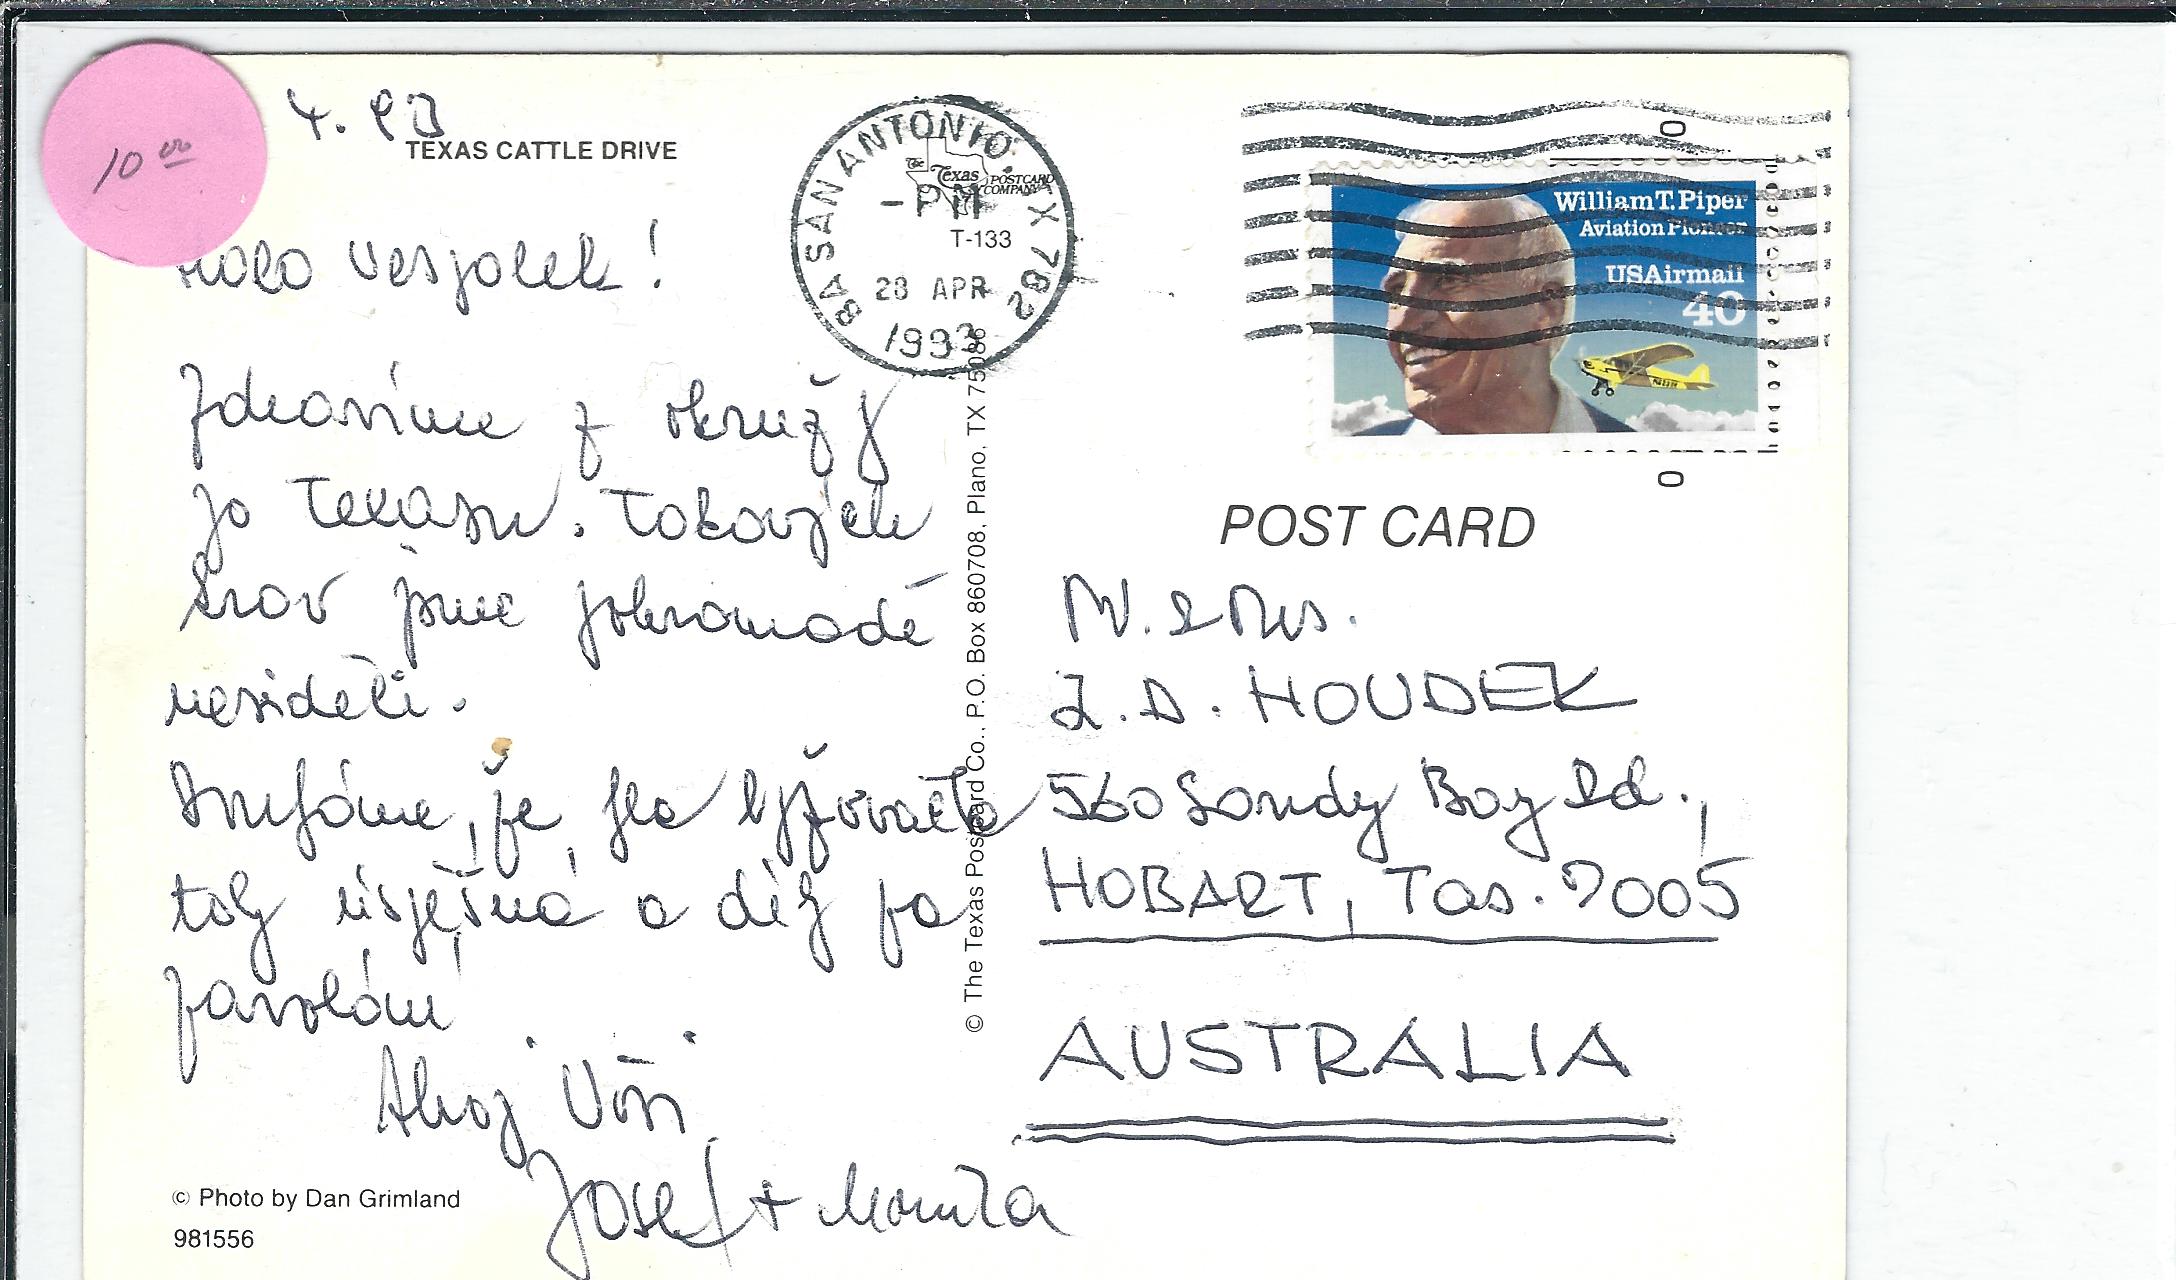 10 00
4. 93
TEXAS CATTLE DRIVE
Vespolek!
Zdravíme z okružy
po Texasu. Tolových
krav jsme pohromadě
neviděli.
Doufáme, že jla lyžovačka
taky úspěšná a díky za
zavolání
Ahoj Vaši
Josef + Monika
© Photo by Dan Grimland
981556
SAN ANTONIO TX 782
The Texas POSTCARD COMPANY
PM
T-133
28 APR
1993
© The Texas Postcard Co., P.O. Box 860708, Plano, TX 75086
William T. Piper
Aviation Pioneer
USAirmail
40
POST CARD
M. & Mrs.
Z.D. HOUDEK
560 Sandy Bay Rd.,
HOBART, Tas. 7005
AUSTRALIA